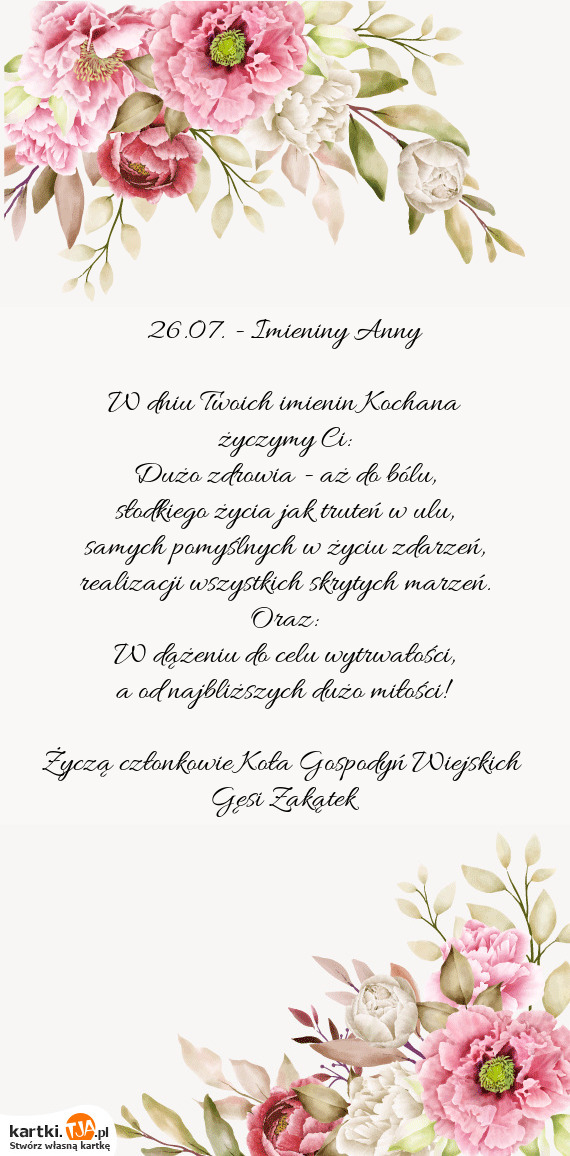 26.07. - Imieniny Anny
W dniu Twoich imienin Kochana
życzymy Ci:
Dużo zdrowia - aż do bólu,
słodkiego życia jak truteń w ulu,
samych pomyślnych w życiu zdarzeń,
realizacji wszystkich skrytych marzeń.
Oraz:
W dążeniu do celu wytrwałości,
a od najbliższych dużo miłości!
Życzą członkowie Koła Gospodyń Wiejskich
Gęsi Zakątek
kartki.TJA.pl
Stwórz własną kartkę